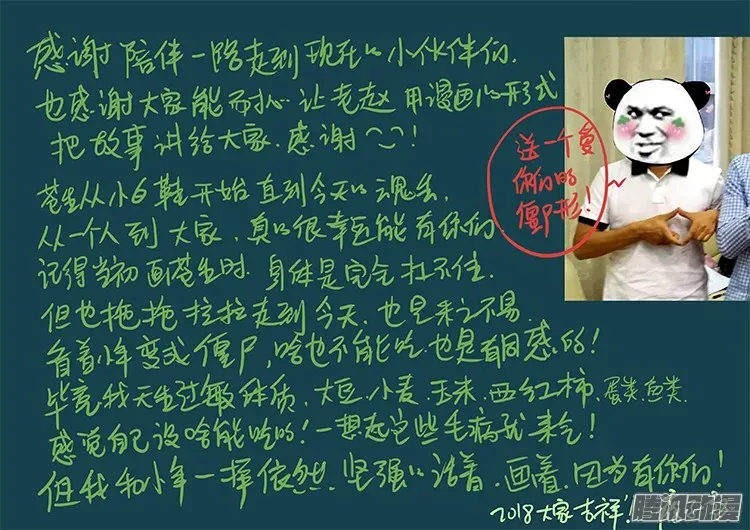 感谢陪伴一路走到现在的小伙伴们.
也感谢大家能耐心 让老赵 用漫画的形式
把故事讲给大家.感谢!
苍生从小白鞋开始 直到今天的魂丢,
从一个人到大家,真的很幸运能有你们
记得当初画苍生时.身体是完全扛不住.
但也拖拖拉拉走到今天.也是来之不易.
看着少年变成僵尸,啥也不能吃.也是有同感的!
毕竟我天生过敏体质,大豆.小麦.玉米.西红柿.蛋类.鱼类.
感觉自己没啥能吃的!一想起这些毛病就来气!
但我和少年一样依然.坚强的活着.画着.因为有你们!
2018大家吉祥!
送一个爱
你们的
僵尸形!
腾讯动漫